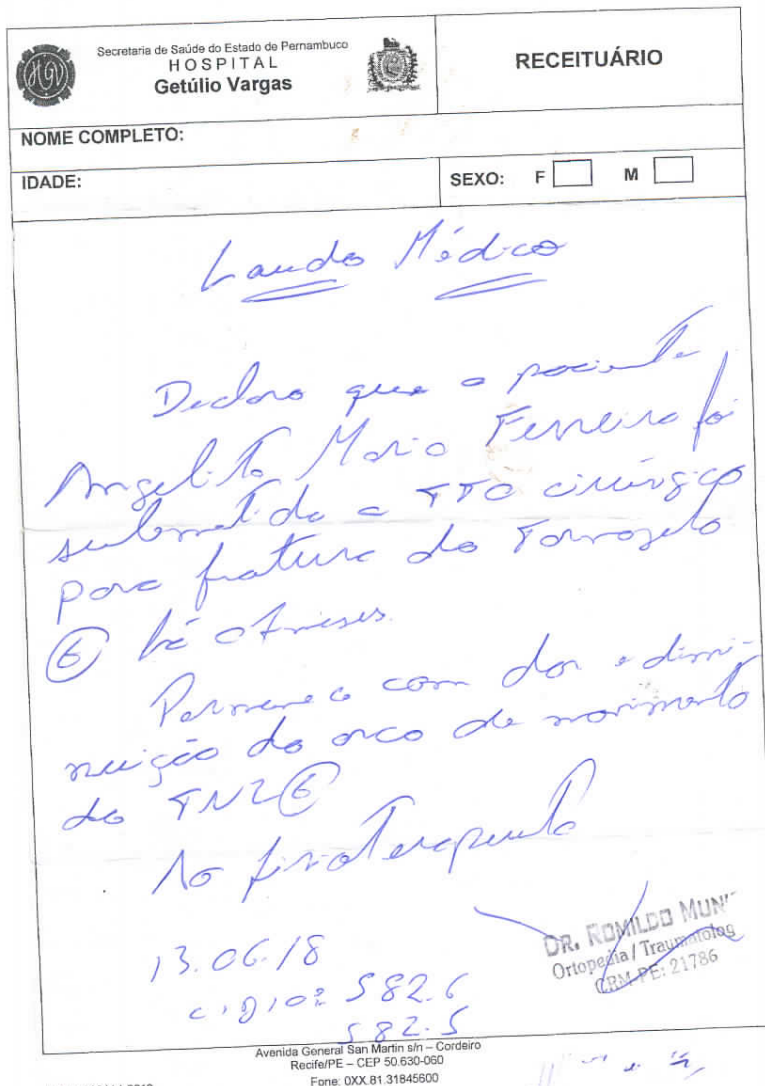 Secretaria de Saúde do Estado de Pernambuco
HOSPITAL
Getúlio Vargas
RECEITUÁRIO
NOME COMPLETO:
IDADE:
SEXO: F M
Laudo Médico
Declaro que a paciente
Angelita Maria Ferreira foi
submetida a TTO cirúrgico
para fratura do Tornozelo
(E) há meses.
Permanece com dor e dimi-
nuição do arco de movimento
do TNZ (E)
Ao fisioterapeuta
13.06.18
CID10: S82.6
S82.5
DR. ROMILDO
Ortopedia / Traumatolog
CRM-PE: 21786
Avenida General San Martin s/n – Cordeiro
Recife/PE – CEP 50.630-060
Fone: 0XX.81.31845600